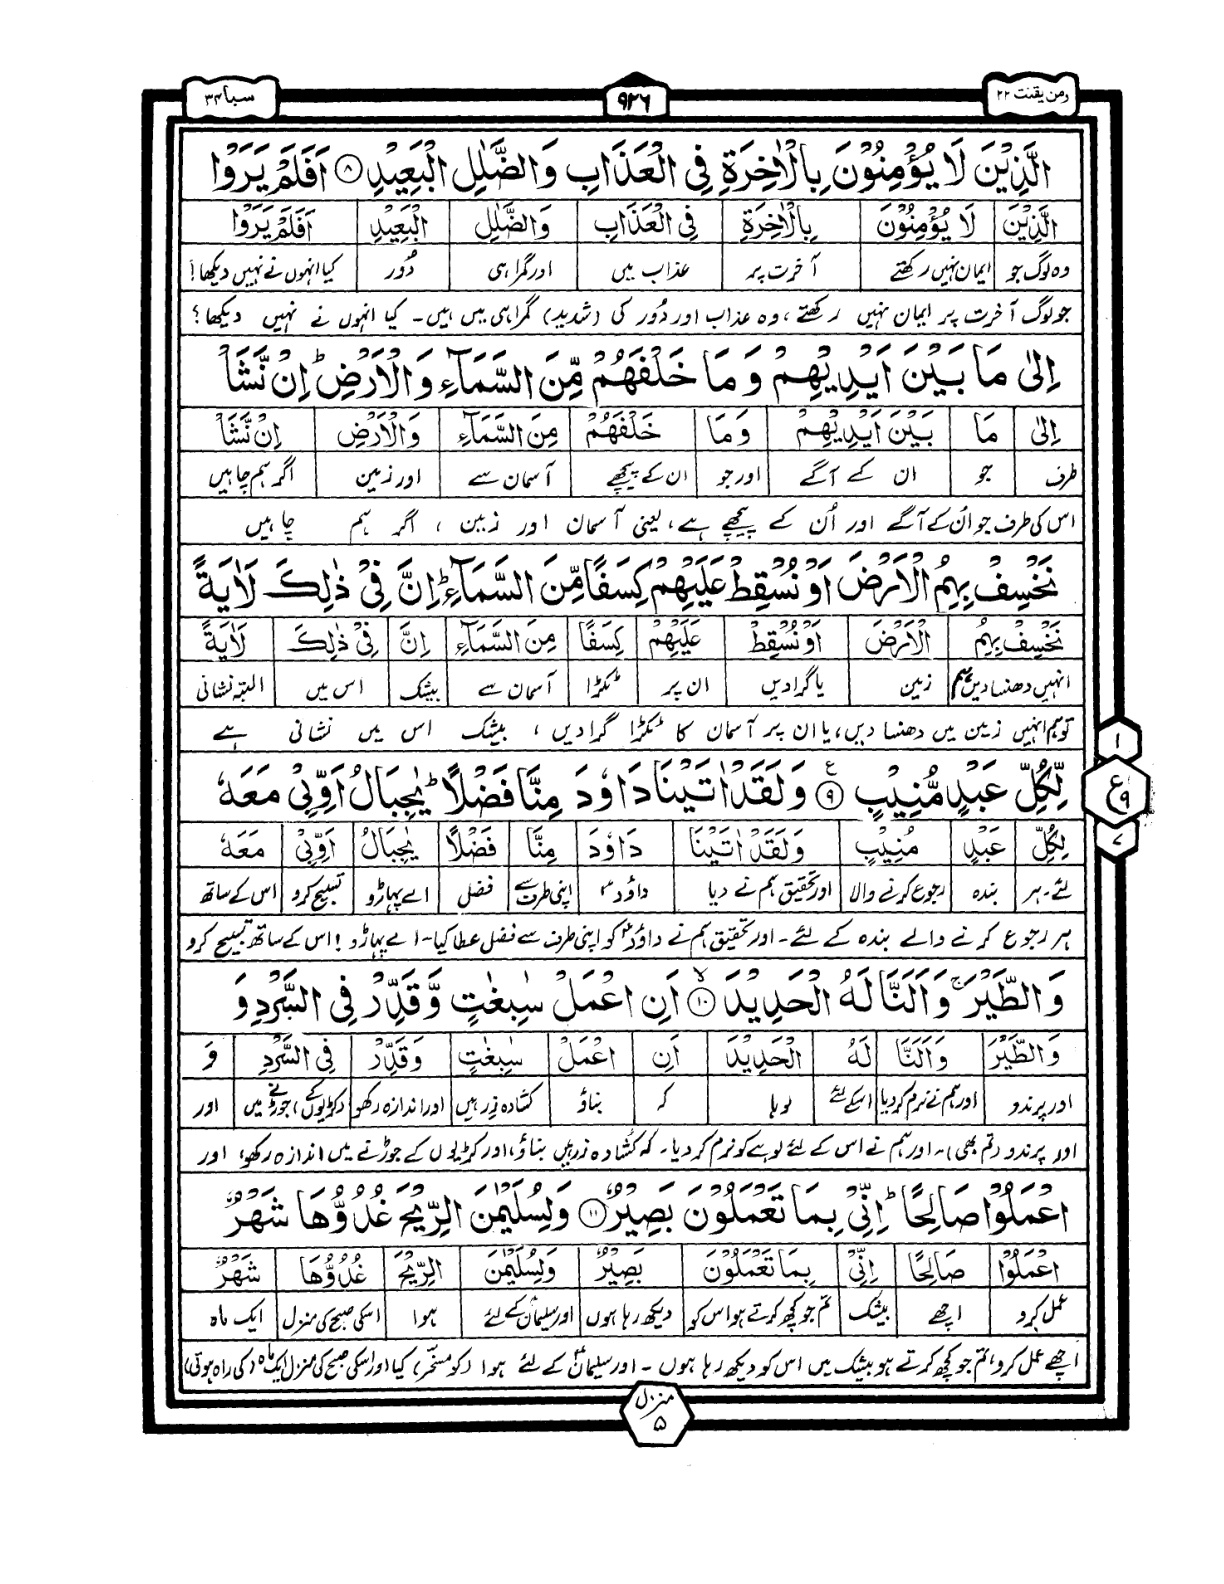 ومن یقنت ۲۲
۹۲۶
سبا ۳۴
الَّذِيْنَ لَا يُؤْمِنُوْنَ بِالْاٰخِرَةِ فِي الْعَذَابِ وَالضَّلٰلِ الْبَعِيْدِ ۸ اَفَلَمْ يَرَوْا
الَّذِيْنَ لَا يُؤْمِنُوْنَ بِالْاٰخِرَةِ فِي الْعَذَابِ وَالضَّلٰلِ الْبَعِيْدِ اَفَلَمْ يَرَوْا
وہ لوگ جو ایمان نہیں رکھتے آخرت پر عذاب میں اور گمراہی دُور کیا انہوں نے نہیں دیکھا!
جو لوگ آخرت پر ایمان نہیں رکھتے، وہ عذاب اور دُور کی (شدید) گمراہی میں ہیں۔ کیا انہوں نے نہیں دیکھا؟
اِلٰى مَا بَيْنَ اَيْدِيْهِمْ وَمَا خَلْفَهُمْ مِّنَ السَّمَآءِ وَالْاَرْضِ ؕ اِنْ نَّشَاْ
اِلٰى مَا بَيْنَ اَيْدِيْهِمْ وَمَا خَلْفَهُمْ مِنَ السَّمَآءِ وَالْاَرْضِ اِنْ نَّشَاْ
طرف جو ان کے آگے اور جو ان کے پیچھے آسمان سے اور زمین اگر ہم چاہیں
اس کی طرف جو اُن کے آگے اور اُن کے پیچھے ہے، یعنی آسمان اور زمین، اگر ہم چاہیں
نَخْسِفْ بِهِمُ الْاَرْضَ اَوْ نُسْقِطْ عَلَيْهِمْ كِسَفًا مِّنَ السَّمَآءِ ؕ اِنَّ فِيْ ذٰلِكَ لَاٰيَةً
نَخْسِفْ بِهِمُ الْاَرْضَ اَوْ نُسْقِطْ عَلَيْهِمْ كِسَفًا مِنَ السَّمَآءِ اِنَّ فِيْ ذٰلِكَ لَاٰيَةً
انہیں دھنسا دیں ہم زمین یا گرا دیں ان پر ٹکڑا آسمان سے بیشک اس میں البتہ نشانی
تو ہم انہیں زمین میں دھنسا دیں، یا ان پر آسمان کا ٹکڑا گرا دیں، بیشک اس میں نشانی ہے
لِّكُلِّ عَبْدٍ مُّنِيْبٍ ۹ ع وَلَقَدْ اٰتَيْنَا دَاوٗدَ مِنَّا فَضْلًا ؕ يٰجِبَالُ اَوِّبِيْ مَعَهٗ
لِكُلِّ عَبْدٍ مُنِيْبٍ وَلَقَدْ اٰتَيْنَا دَاوٗدَ مِنَّا فَضْلًا يٰجِبَالُ اَوِّبِيْ مَعَهٗ
لئے۔ ہر بندہ رجوع کرنے والا اور تحقیق ہم نے دیا داؤدؑ اپنی طرف سے فضل اے پہاڑو تسبیح کرو اس کے ساتھ
ہر رجوع کرنے والے بندہ کے لئے۔ اور تحقیق ہم نے داؤدؑ کو اپنی طرف سے فضل عطا کیا۔ اے پہاڑو! اس کے ساتھ تسبیح کرو
وَالطَّيْرَ ۚ وَاَلَنَّا لَهُ الْحَدِيْدَ ۱۰ اَنِ اعْمَلْ سٰبِغٰتٍ وَّقَدِّرْ فِي السَّرْدِ وَ
وَالطَّيْرَ وَاَلَنَّا لَهُ الْحَدِيْدَ اَنِ اعْمَلْ سٰبِغٰتٍ وَقَدِّرْ فِي السَّرْدِ وَ
اور پرندو اور ہم نے نرم کر دیا اسکے لئے لوہا کہ بناؤ کشادہ زرہیں اور اندازہ رکھو (کڑیوں کے) جوڑنے میں اور
اور پرندو (تم بھی)۔ اور ہم نے اس کے لئے لوہے کو نرم کر دیا۔ کہ کشادہ زرہیں بناؤ، اور کڑیوں کے جوڑنے میں اندازہ رکھو، اور
اعْمَلُوْا صَالِحًا ؕ اِنِّيْ بِمَا تَعْمَلُوْنَ بَصِيْرٌ ۱۱ وَلِسُلَيْمٰنَ الرِّيْحَ غُدُوُّهَا شَهْرٌ
اعْمَلُوْا صَالِحًا اِنِّيْ بِمَا تَعْمَلُوْنَ بَصِيْرٌ وَلِسُلَيْمٰنَ الرِّيْحَ غُدُوُّهَا شَهْرٌ
عمل کرو اچھے بیشک تم جو کچھ کرتے ہو اس کو دیکھ رہا ہوں اور سلیمانؑ کے لئے ہوا اسکی صبح کی منزل ایک ماہ
اچھے عمل کرو، تم جو کچھ کرتے ہو بیشک میں اس کو دیکھ رہا ہوں۔ اور سلیمانؑ کے لئے ہوا (کو مسخر) کیا (اور اسکی صبح کی منزل ایک ماہ (کی راہ ہوتی)
۱
ع ۹
۷
منزل ۵